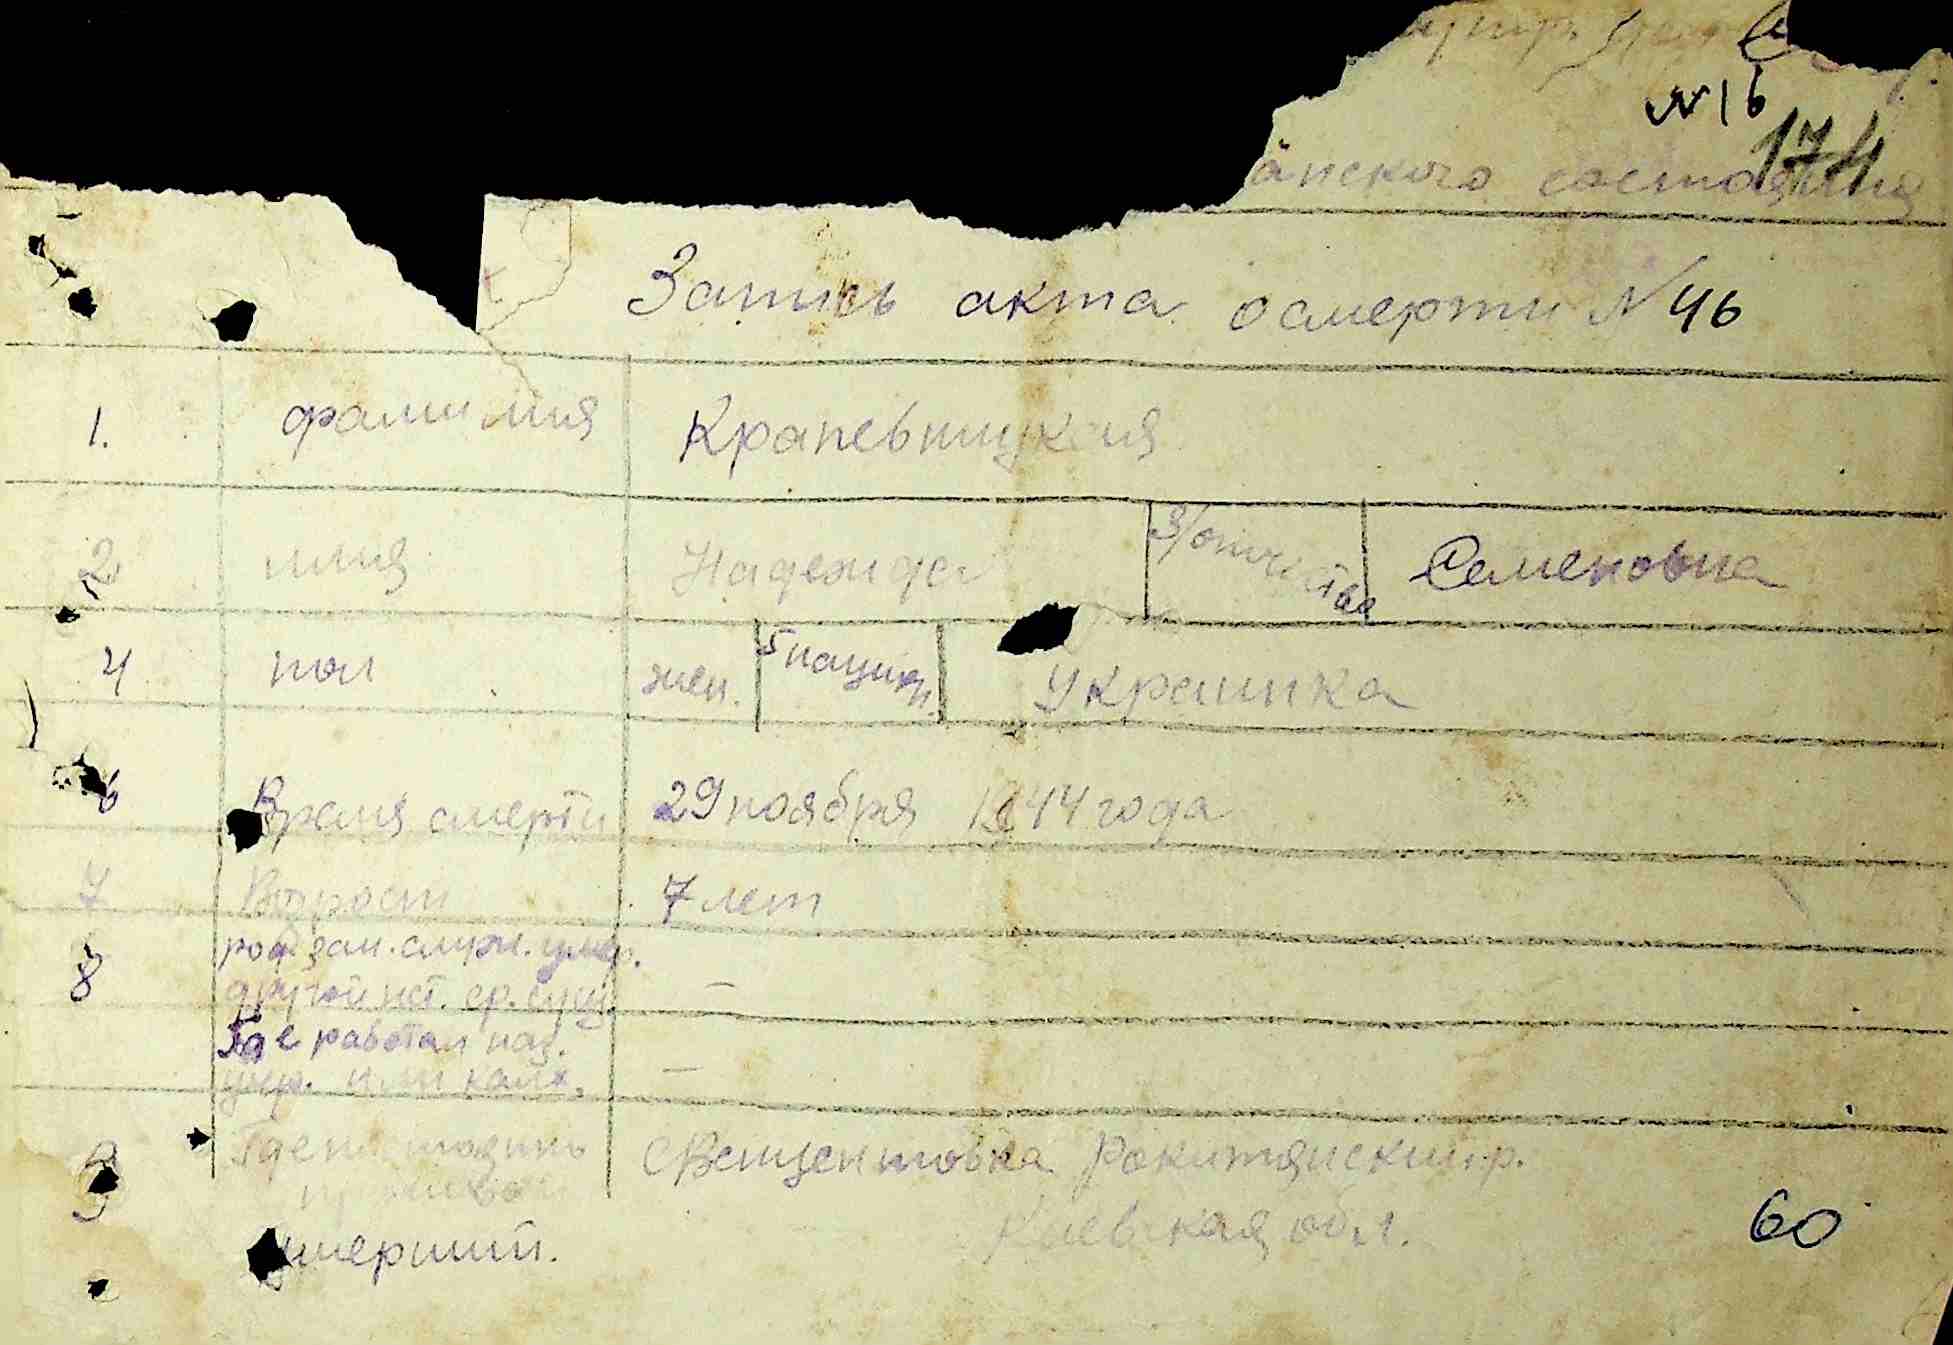 N 16
174
анского состояния
Запись акта о смерти N 46
1. фамилия Крапевницкая
2 имя Надежда 3/отчества Семеновна
4 пол жен. 5 национ. Украинка
6 Время смерти 29 ноября 1944 года
7 Возраст 7 лет
8 род зан. служ. умер.
другой ист. ср. сущ. —
Где работал наз.
учр. или колх. —
9 Где постоянно Свещентовка Рокитянский р.
проживал Киевская обл.
умерший. 60